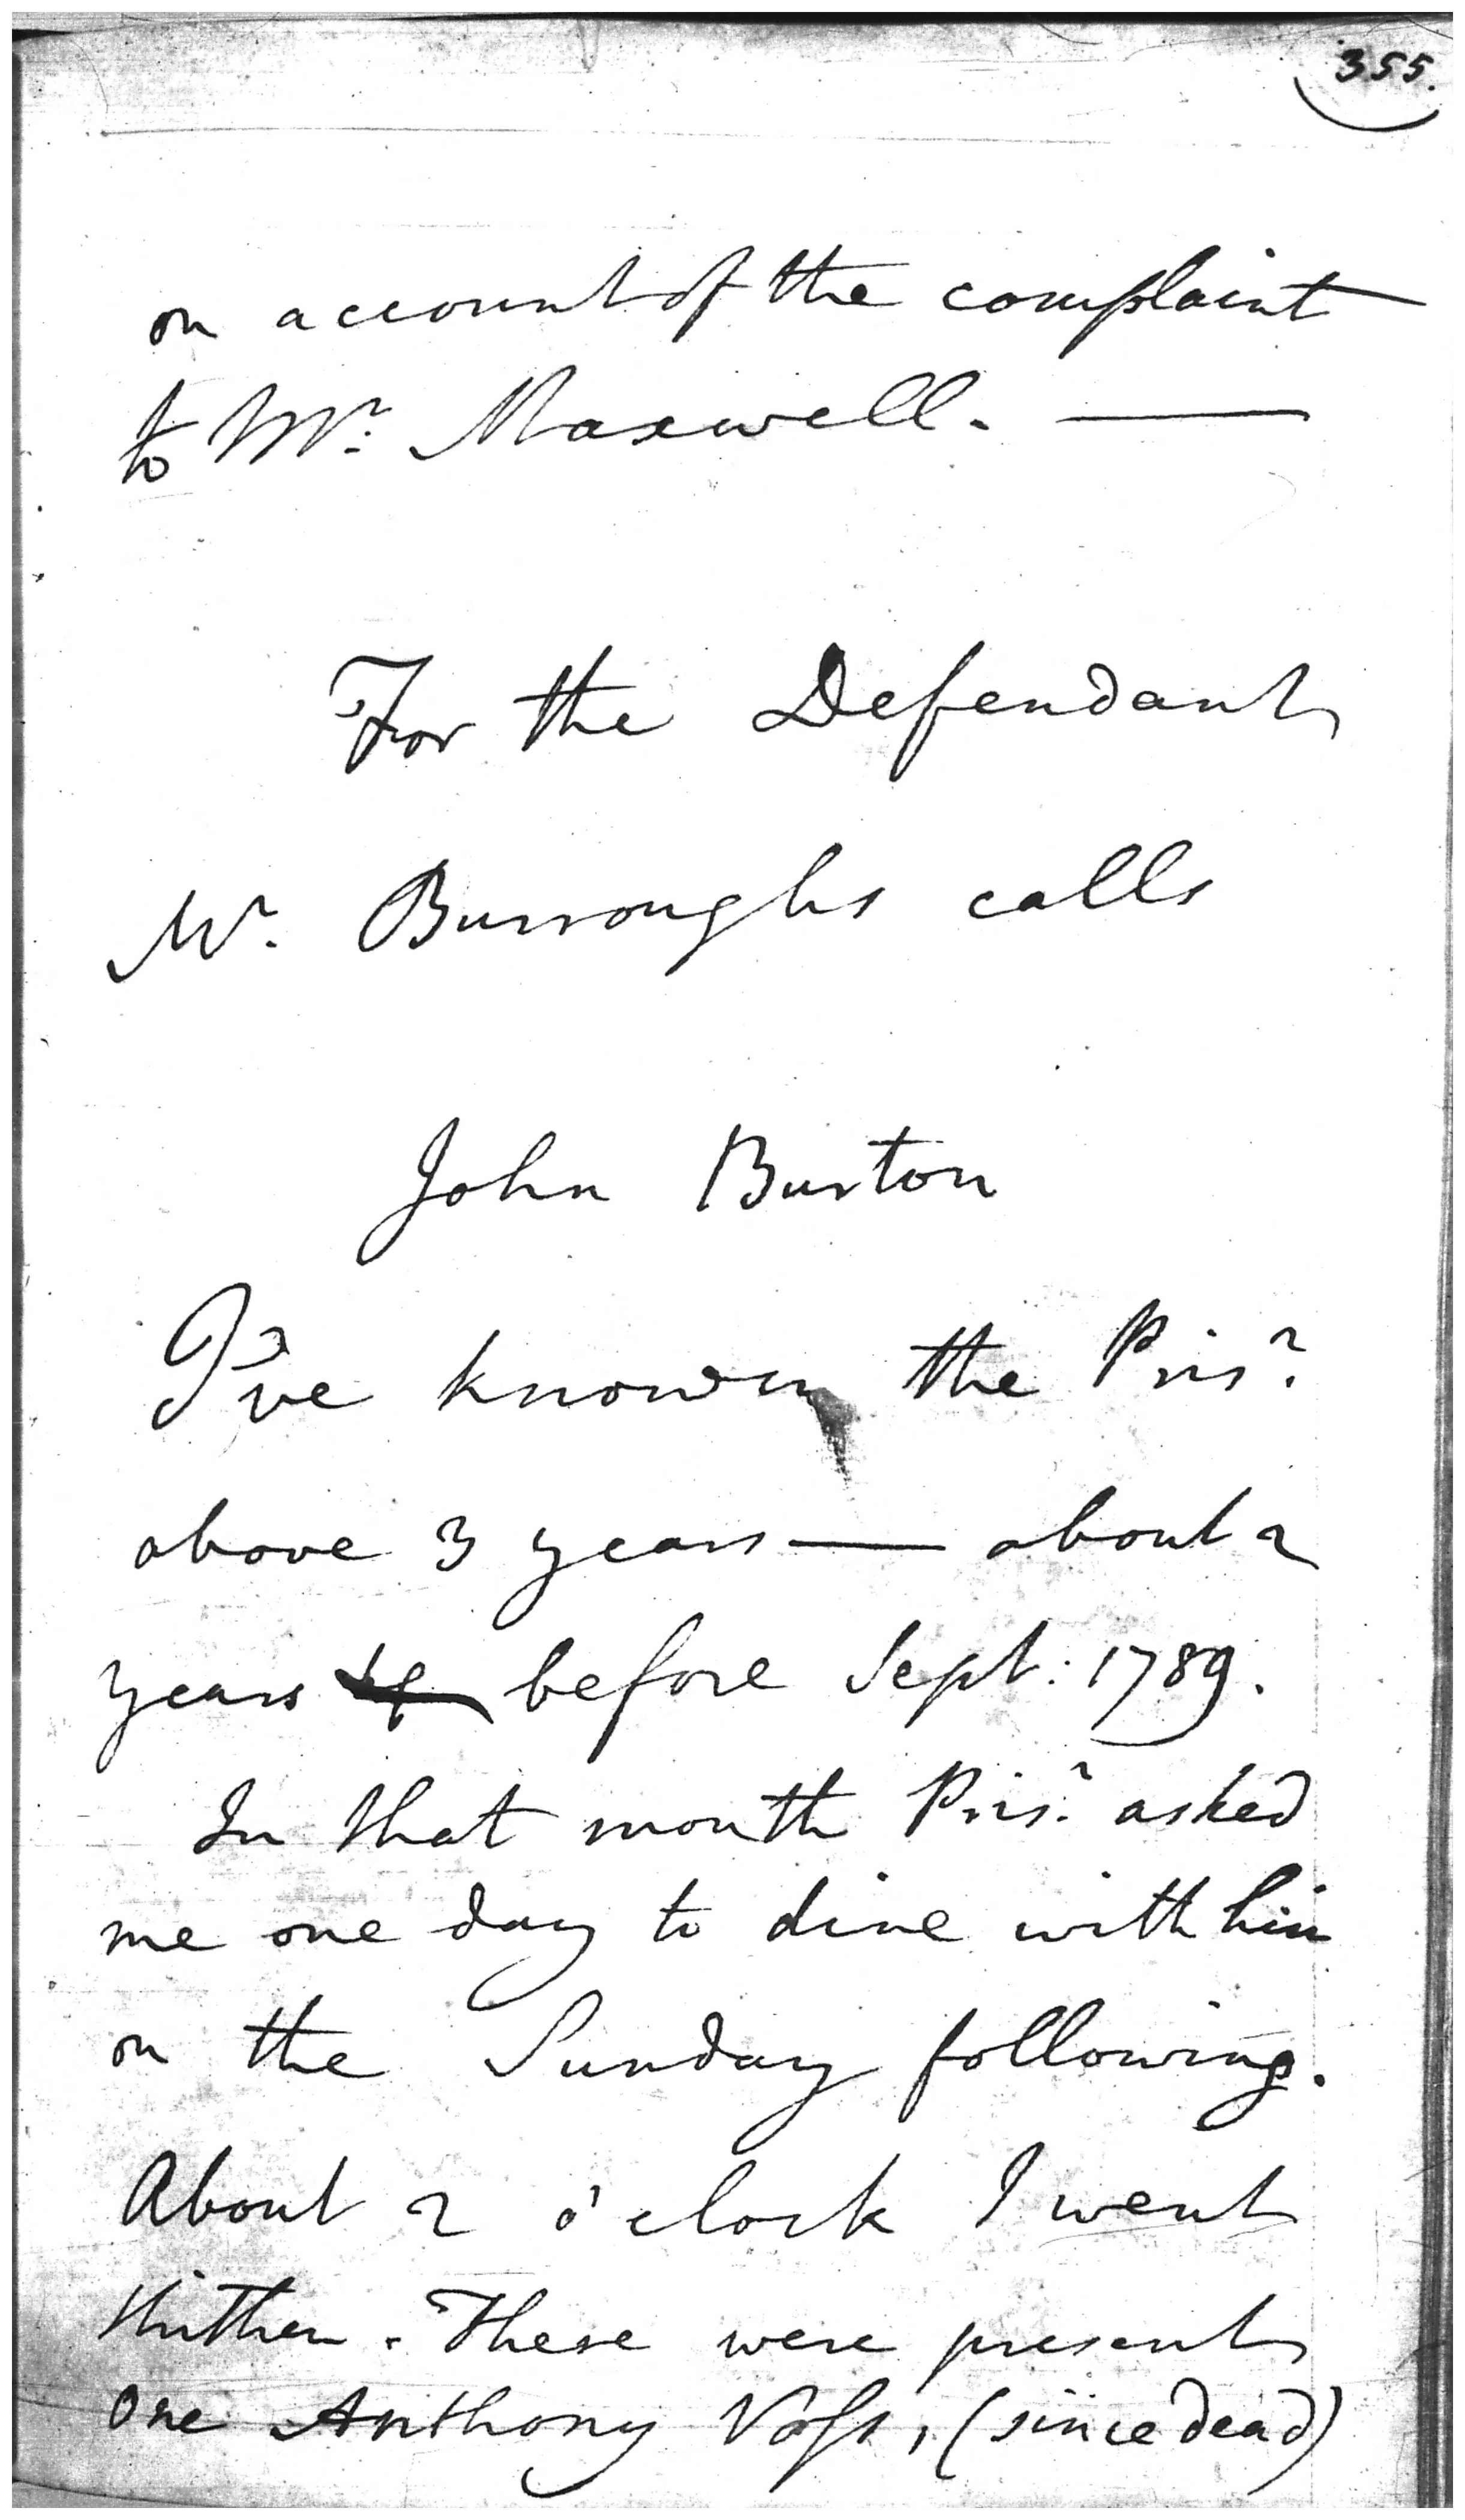 355.
on account of the complaint
to Mr. Maxwell. —
For the Defendant
Mr. Burroughs calls
John Burton
I've known the Prisr.
above 3 years — about 2
years before Sept: 1789.
In that month Prisr. asked
me one day to dine with him
on the Sunday following.
About 2 o'clock I went
thither. There were present
one Anthony Voss, (since dead)